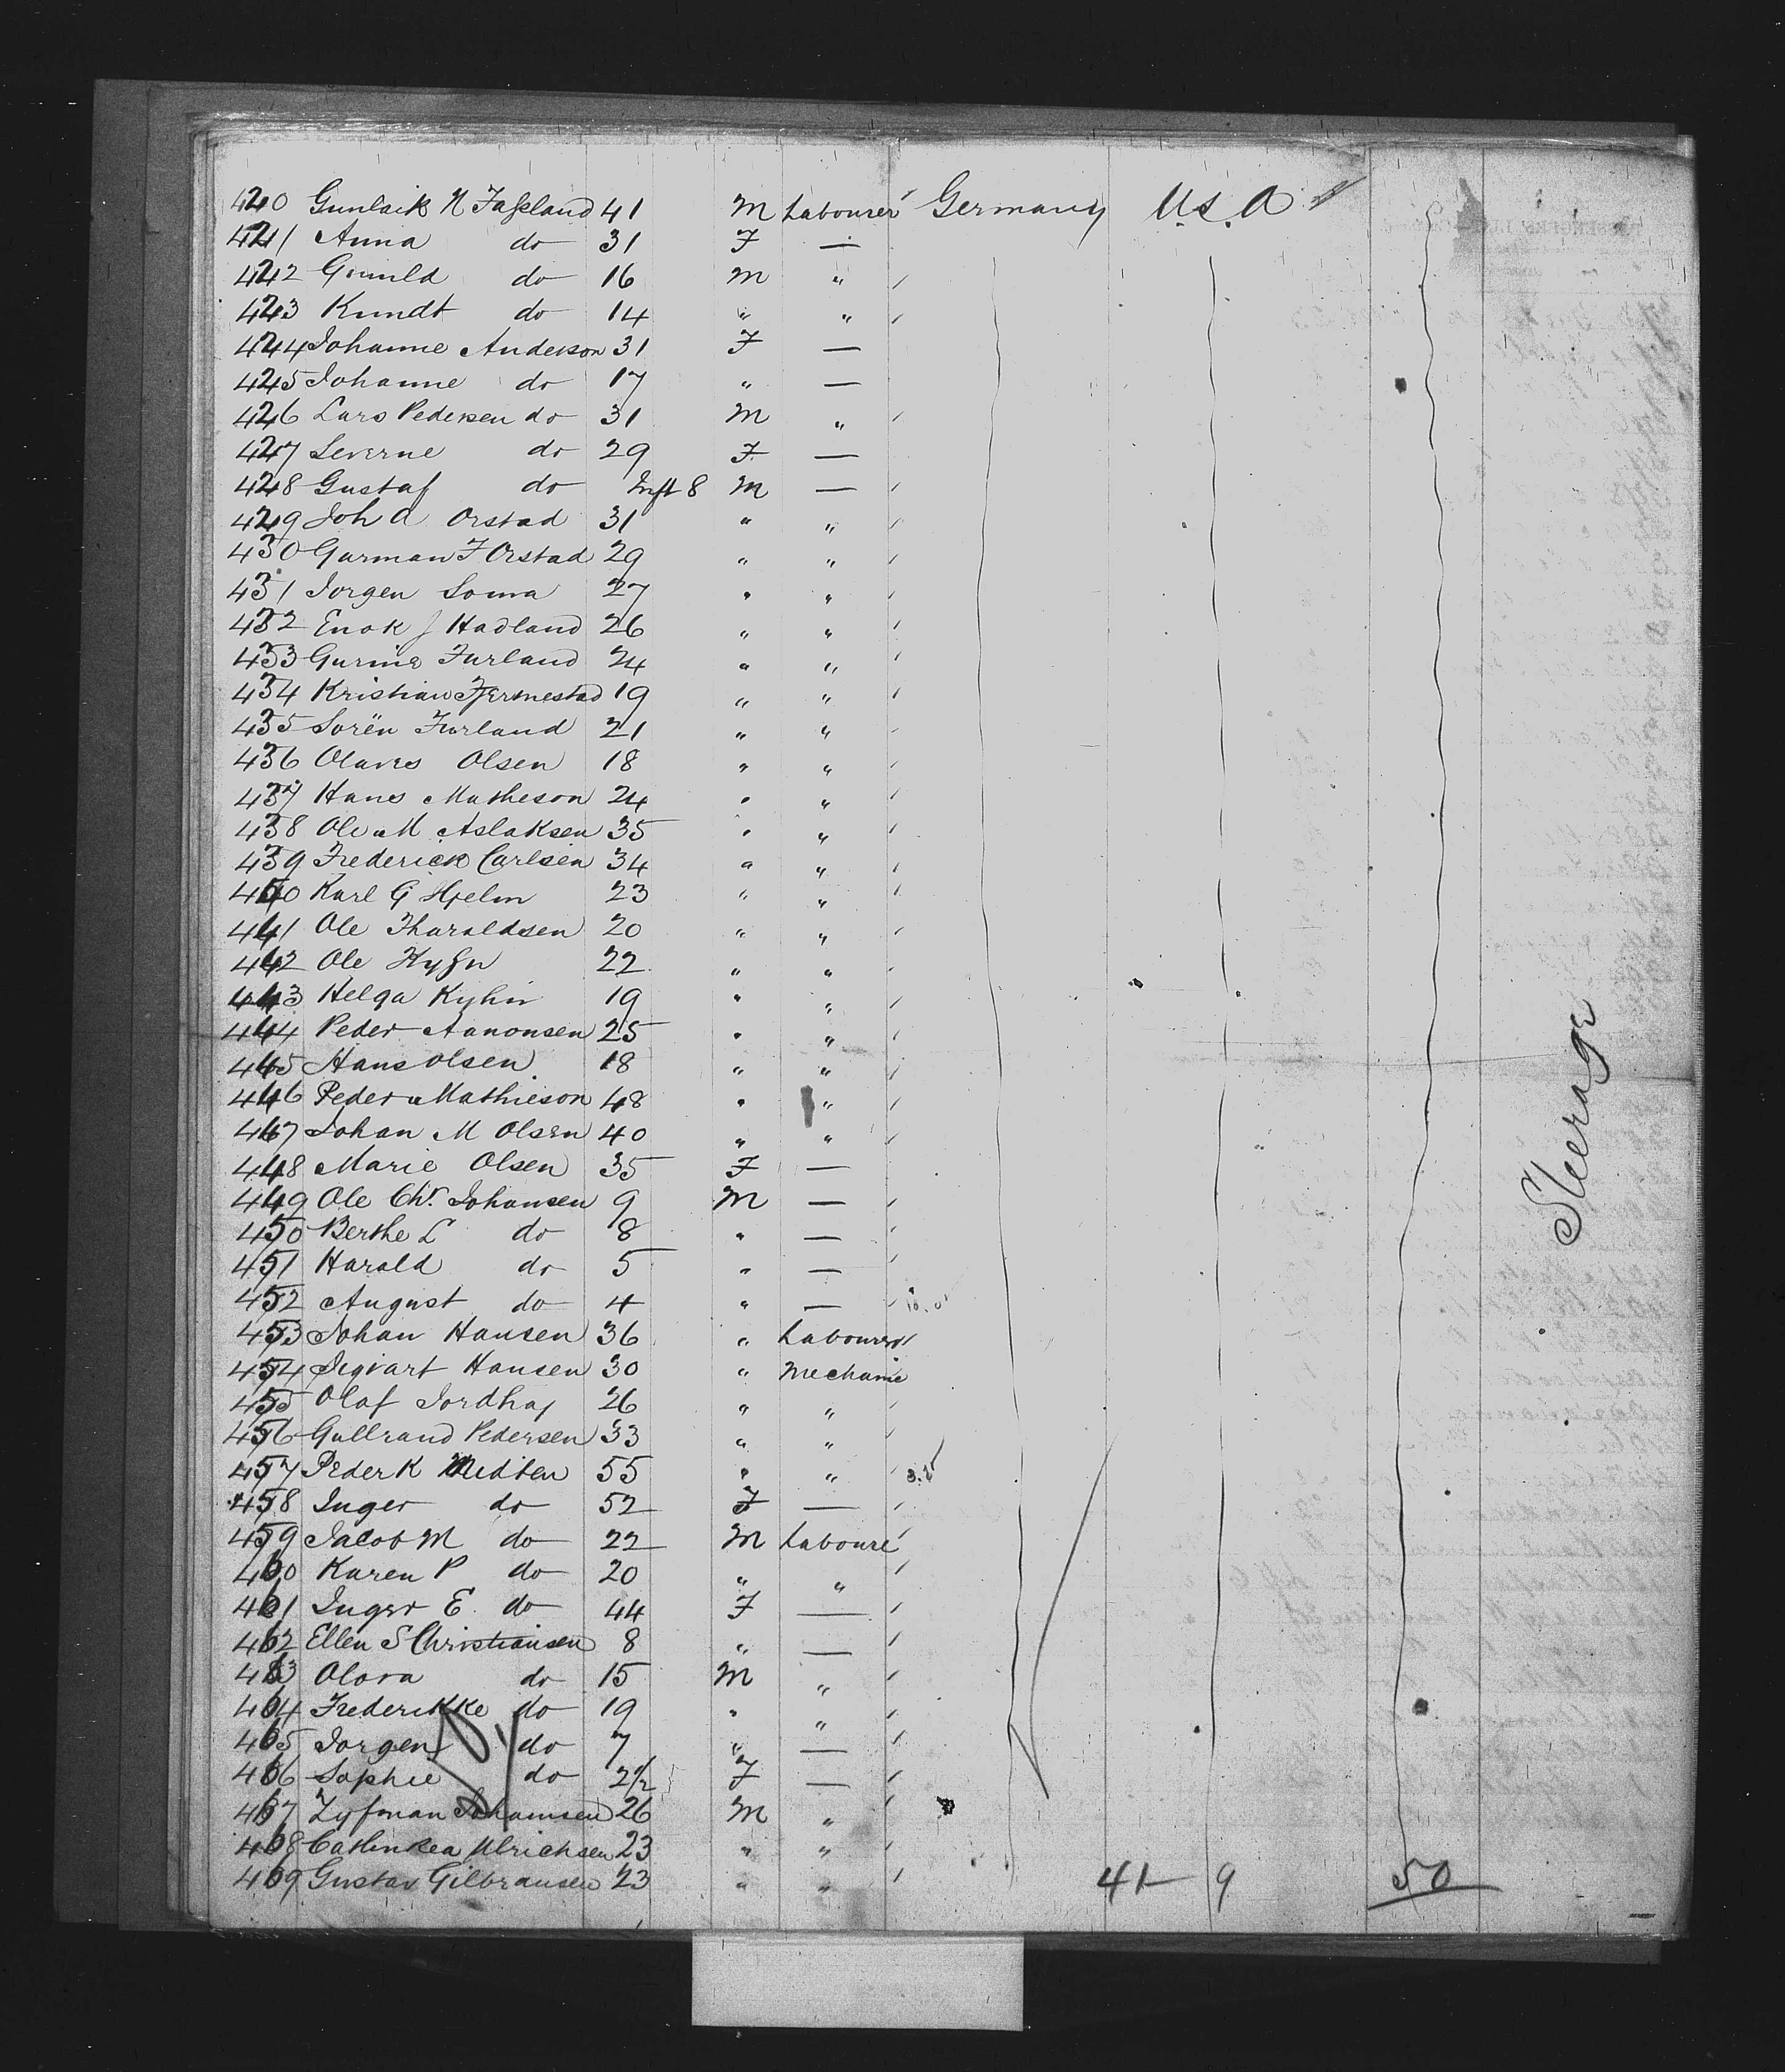 420 Gunlaik N Fasseland 41 M Labourer Germany U.S.A
421 Anna do 31 F —
422 Gunuld do 16 M "
423 Kundt do 14 " "
424 Johanne Anderson 31 F —
425 Johanne do 17 " —
426 Lars Pedersen do 31 M "
427 Severne do 29 F —
428 Gustaf do Inft 8 M —
429 Joh A Orstad 31 " "
430 Garman F Orstad 29 " "
431 Jorgen Soma 27 " "
432 Enok J Hadland 26 " "
433 Gurine Furland 24 " "
434 Kristian Fjermestad 19 " "
435 Sorën Furland 21 " "
436 Olaves Olsen 18 " "
437 Hans Matheson 24 " "
438 Ole M Aslaksen 35 " "
439 Frederick Carlsen 34 " "
440 Karl G Hjelm 23 " "
441 Ole Tharaldsen 20 " "
442 Ole 22 " "
443 Helga Kyhn 19 " "
444 Peder Aanonsen 25 " "
445 Hans Olsen 18 " "
446 Peder Mathieson 48 " "
447 Johan M Olsen 40 " "
448 Marie Olsen 35 F —
449 Ole Chr. Johansen 9 M —
450 Berthe L do 8 " —
451 Harald do 5 " —
452 August do 4 " —
453 Johan Hansen 36 " Labourer
454 Sigvart Hansen 30 " Mechanic
455 Olaf Jordhaj 26 " "
456 Gullrand Pedersen 33 " "
457 Peder K 55 " "
458 Inger do 52 F —
459 Jacob M do 22 M Laboure
460 Karen P do 20 " "
461 Inger E do 44 F —
462 Ellen S Christiansen 8 " —
463 Olova do 15 M "
464 Frederikke do 19 " "
465 Jorgen do 7 " —
466 Sophie do 2 1/2 F —
467 Zyfman Johannsen 26 M "
468 Cathinkea Ulrichsen 23 " "
469 Gustav Gilbransen 23 " "
41 9 50
Steerage